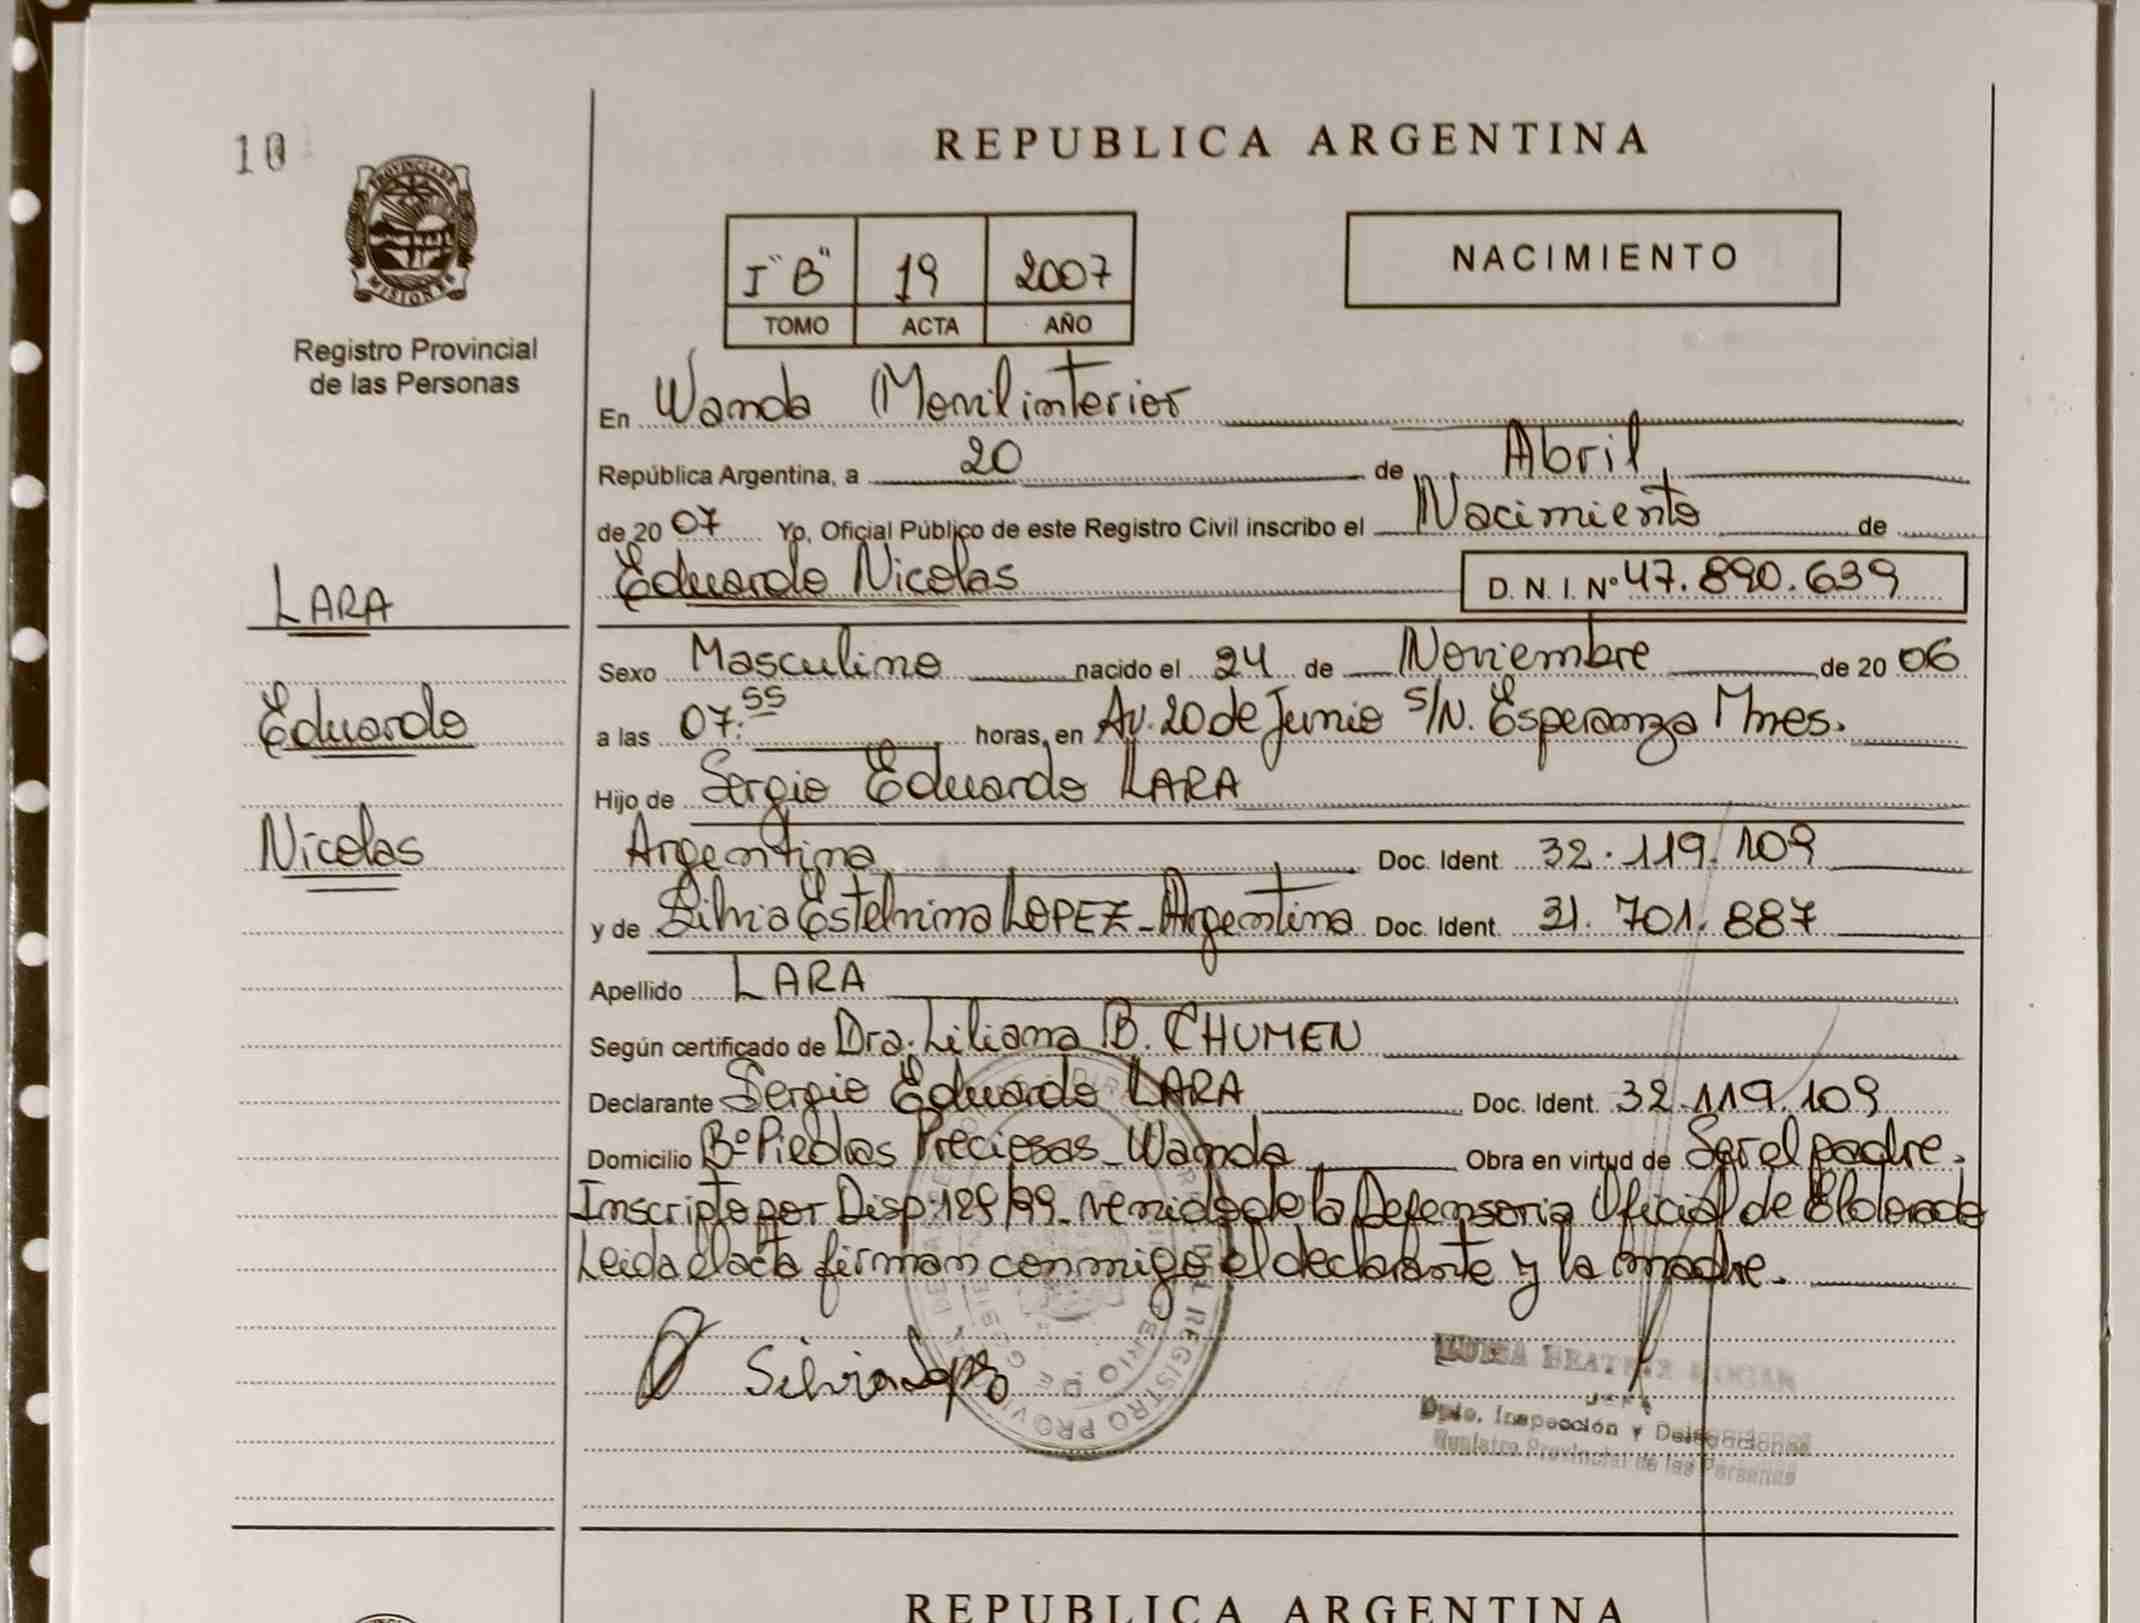 10
PROVINCIA DE
MISIONES
Registro Provincial
de las Personas
LARA
Eduardo
Nicolas
REPUBLICA ARGENTINA
I "B" 19 2007
TOMO ACTA AÑO
NACIMIENTO
En Wanda Movil interior
República Argentina, a 20 de Abril
de 2007 Yo, Oficial Público de este Registro Civil inscribo el Nacimiento de
Eduardo Nicolas D. N. I. Nº 47.890.639
Sexo Masculino nacido el 24 de Noviembre de 2006
a las 07:55 horas, en Av. 20 de Junio S/N. Esperanza Mnes.
Hijo de Sergio Eduardo LARA
Argentina Doc. Ident. 32.119.109
y de Silvia Estelvina LOPEZ - Argentina Doc. Ident. 31.701.887
Apellido LARA
Según certificado de Dra. Liliana B. CHUMEN
Declarante Sergio Eduardo LARA Doc. Ident. 32.119.109
Domicilio Bº Piedras Preciosas - Wanda Obra en virtud de Ser el padre.
Inscripto por Disp: 129/99 - venido de la Defensoria Oficial de Eldorado
Leida el acta firman conmigo el declarante y la madre.
Silvia Lopez
BEATRIZ
JEFA
Dpto. Inspección y Delegaciones
Registro Provincial de las Personas
REPUBLICA ARGENTINA